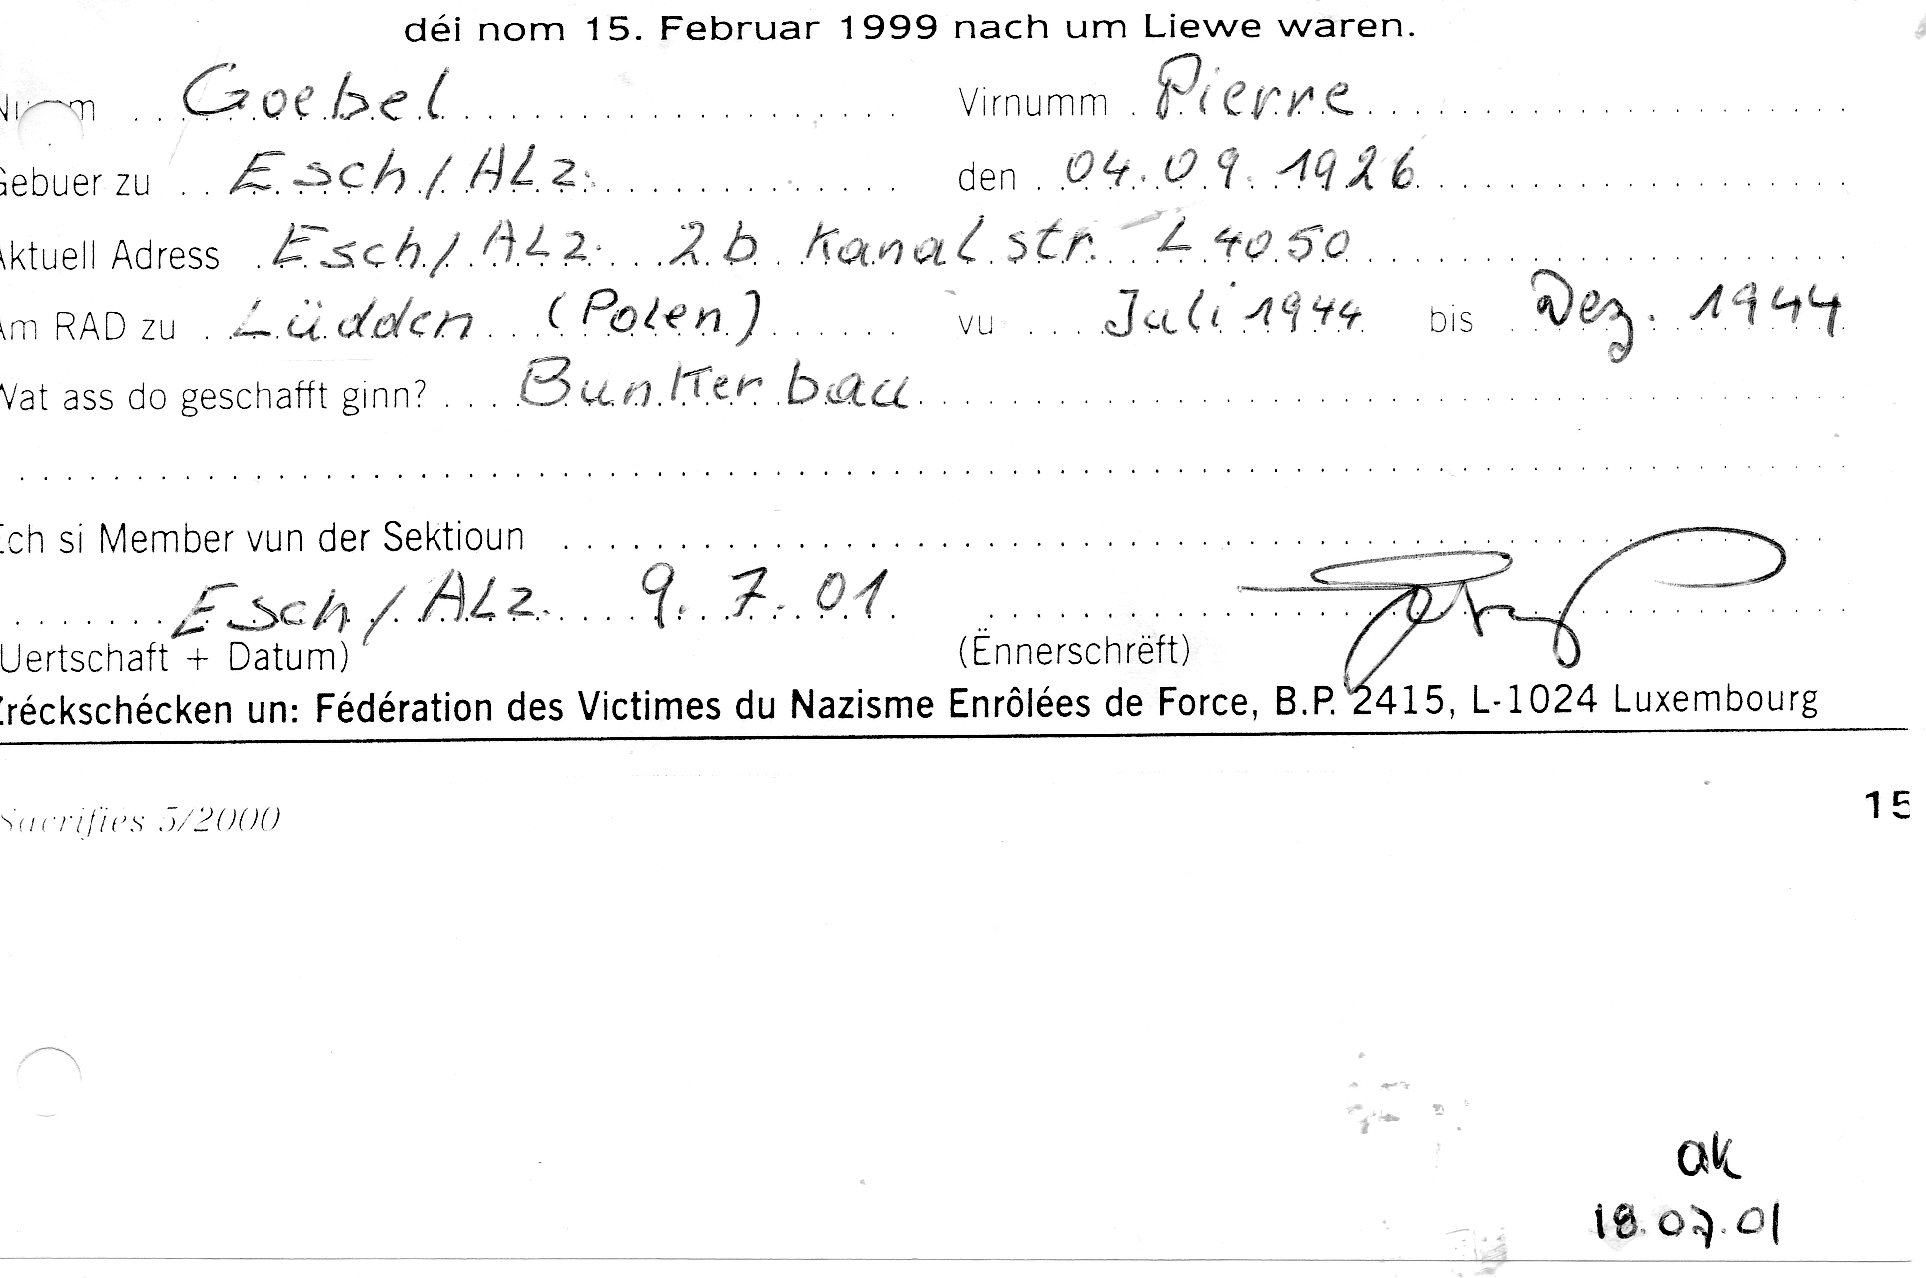 déi nom 15. Februar 1999 nach um Liewe waren.
Goebel Virnumm Pierre
Gebuer zu Esch/ALz. den 04.09.1926
Aktuell Adress Esch/ALz. 2b Kanalstr. L 4050
Am RAD zu Lüdden (Polen) vu Juli 1944 bis Dez. 1944
Wat ass do geschafft ginn? Bunkerbau
Ech si Member vun der Sektioun
Esch/ALz. 9.7.01
(Uertschaft + Datum) (Ënnerschrëft)
Zréckschécken un: Fédération des Victimes du Nazisme Enrôlées de Force, B.P. 2415, L-1024 Luxembourg
Sacrifiés 5/2000 15
ak
18.07.01